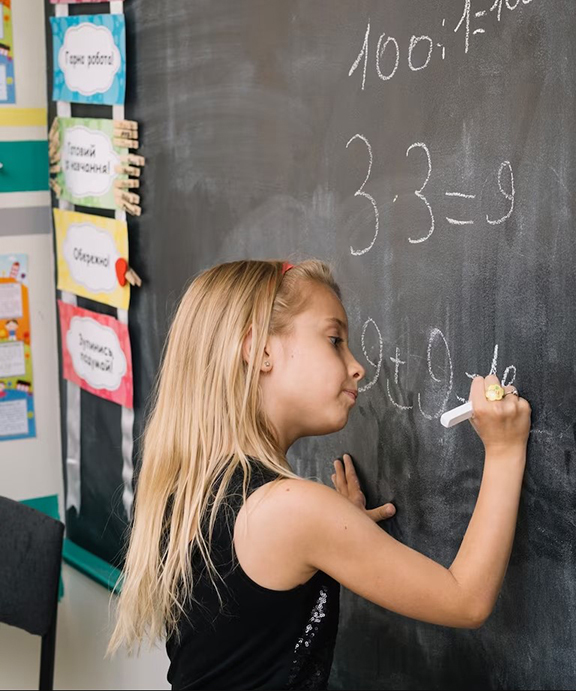 Гарна робота!
Готовий
навчання!
Обережно!
Зупинись,
подумай!
100:1=100
3·3=9
9+9=